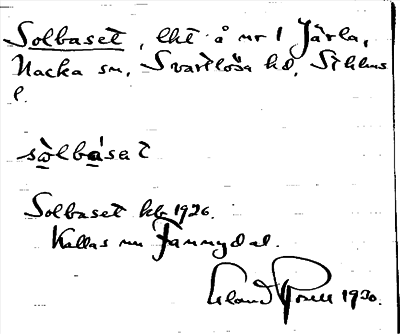 Solbaset, lht å nr 1 Järla,
Nacka sn, Svartlösa hd, Sthlms
l.
sòlbásat
Solbaset kb 1926.
Kallas nu Fannydal.
Erland 1930.